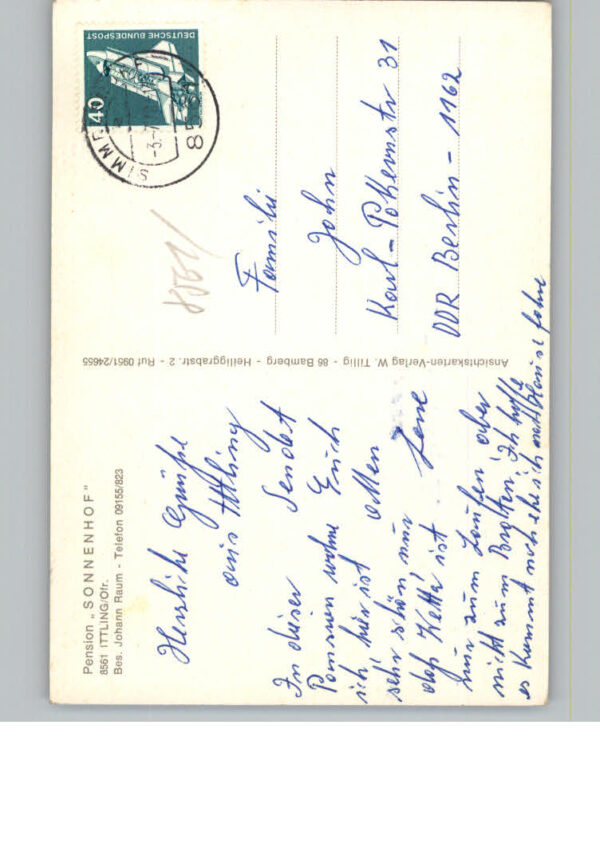 Pension „SONNENHOF"
8561 ITTLING/Ofr.
Bes. Johann Raum - Telefon 09155/823
Herzliche Grüße
aus Ittling
Sendet
Euch
allen
Lene
In dieser
Pension wohne
ich hier ist
sehr schön nur
daß Wetter ist
nur zum Laufen aber
nicht zum Braten. Ich hoffe
es kommt noch ehe ich nach Hause fahre
Ansichtskarten-Verlag W. Tillig - 86 Bamberg - Heiliggrabstr. 2 - Ruf 0951/24655
DEUTSCHE BUNDESPOST
40
8561/
Familie
John
Karl-Pokernstr 31
DDR Berlin - 1162